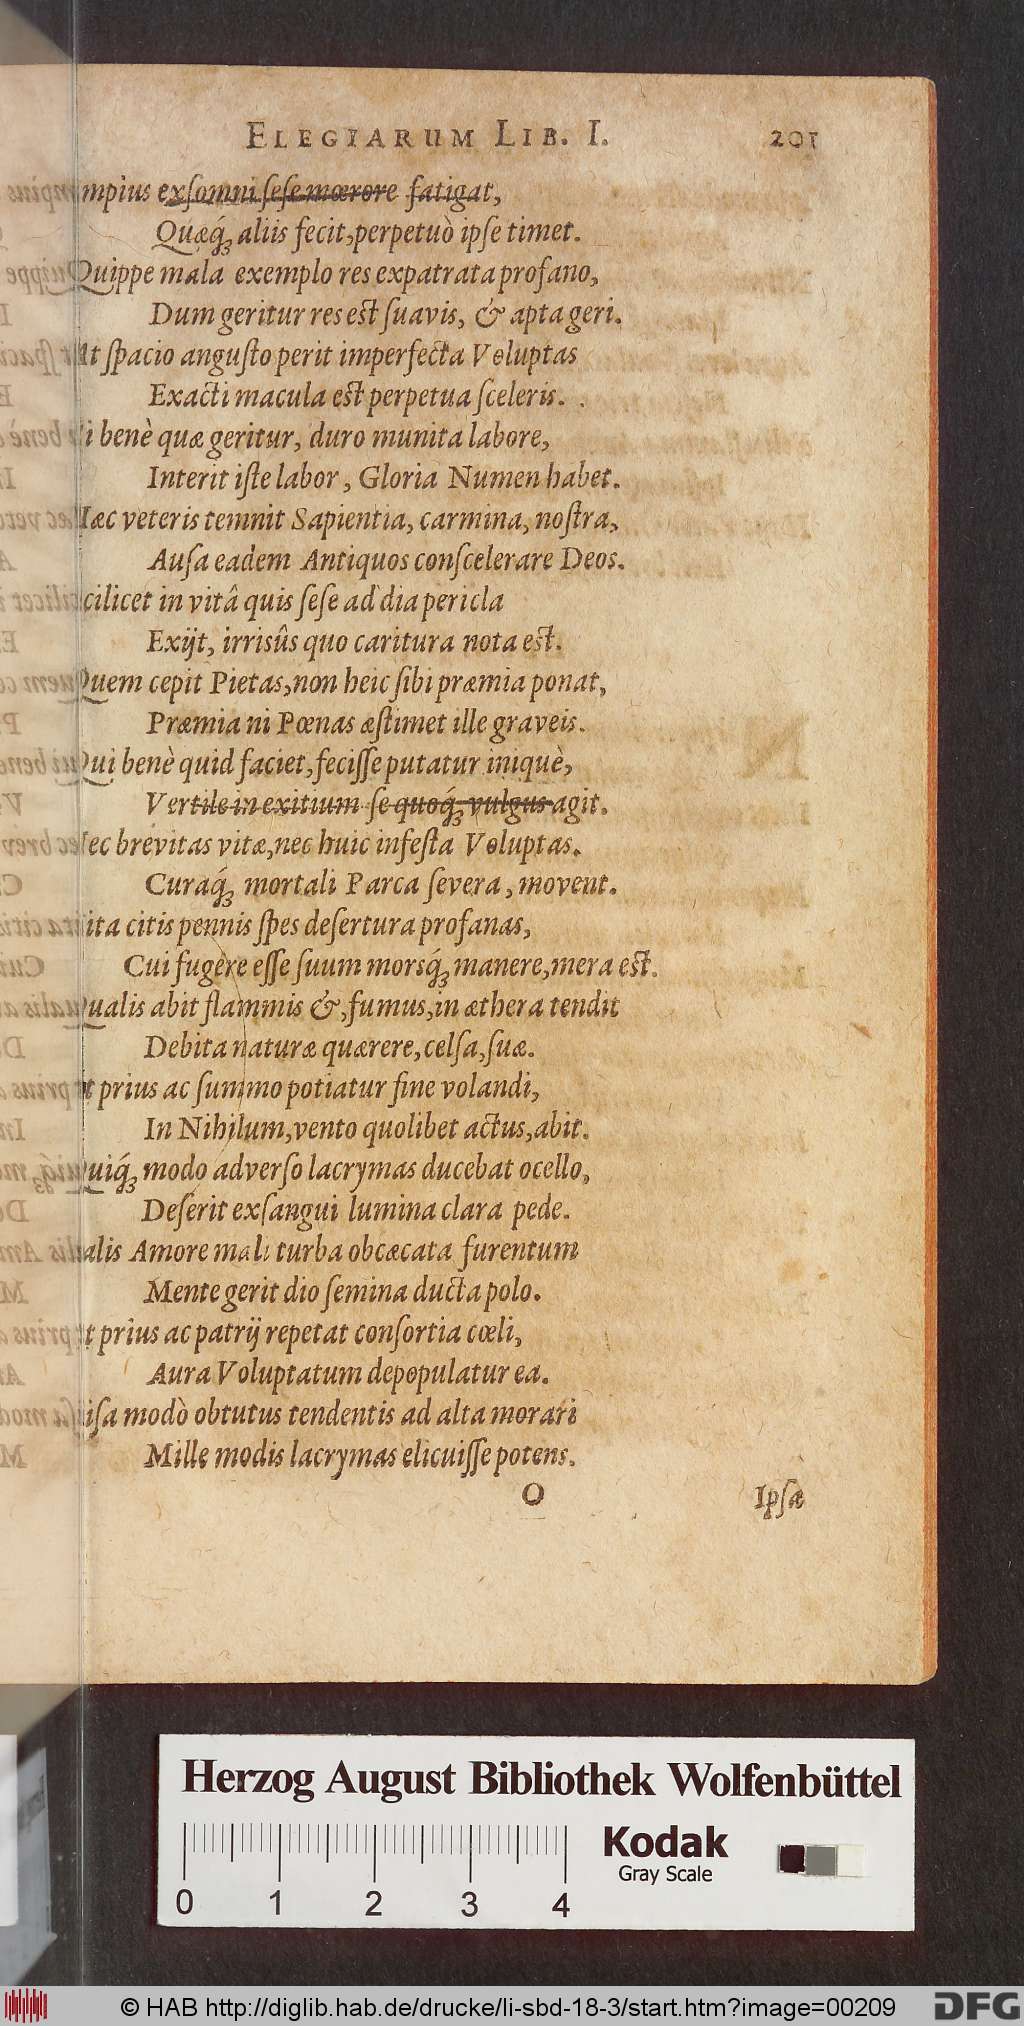 ELEGIARUM LIB. I. 201
mpius exſomni ſeſe mœrore fatigat,
Quæq́ꝫ aliis fecit, perpetuò ipſe timet.
Quippe mala exemplo res expatrata profano,
Dum geritur res est ſuavis, & apta geri.
At ſpacio anguſto perit imperfecta Voluptas
Exacti macula est perpetua ſceleris.
i benè quæ geritur, duro munita labore,
Interit iſte labor, Gloria Numen habet.
Hæc veteris temnit Sapientia, carmina, noſtra,
Auſa eadem Antiquos conſcelerare Deos.
cilicet in vitâ quis ſeſe ad dia pericla
Exijt, irriſûs quo caritura nota est.
Quem cepit Pietas, non heic ſibi præmia ponat,
Præmia ni Pœnas æſtimet ille graveis.
Qui benè quid faciet, feciſſe putatur iniquè,
Vertile in exitium ſe quoq́ꝫ vulgus agit.
Nec brevitas vitæ, nec huic infeſta Voluptas.
Curaq́ꝫ mortali Parca ſevera, movent.
ita citis pennis ſpes deſertura profanas,
Cui fugere eſſe ſuum morsq́ꝫ manere, mera est.
Qualis abit flammis &, fumus, in æthera tendit
Debita naturæ quærere, celſa, ſuæ.
t prius ac ſummo potiatur fine volandi,
In Nihilum, vento quolibet actus, abit.
Quiq́ꝫ modo adverſo lacrymas ducebat ocello,
Deſerit exſangui lumina clara pede.
alis Amore mali turba obcæcata furentum
Mente gerit dio ſemina ducta polo.
t prius ac patrij repetat conſortia cœli,
Aura Voluptatum depopulatur ea.
iſa modò obtutus tendentis ad alta morari
Mille modis lacrymas elicuiſſe potens.
O Ipſæ
Herzog August Bibliothek Wolfenbüttel
Kodak
Gray Scale
0 1 2 3 4
© HAB http://diglib.hab.de/drucke/li-sbd-18-3/start.htm?image=00209
DFG